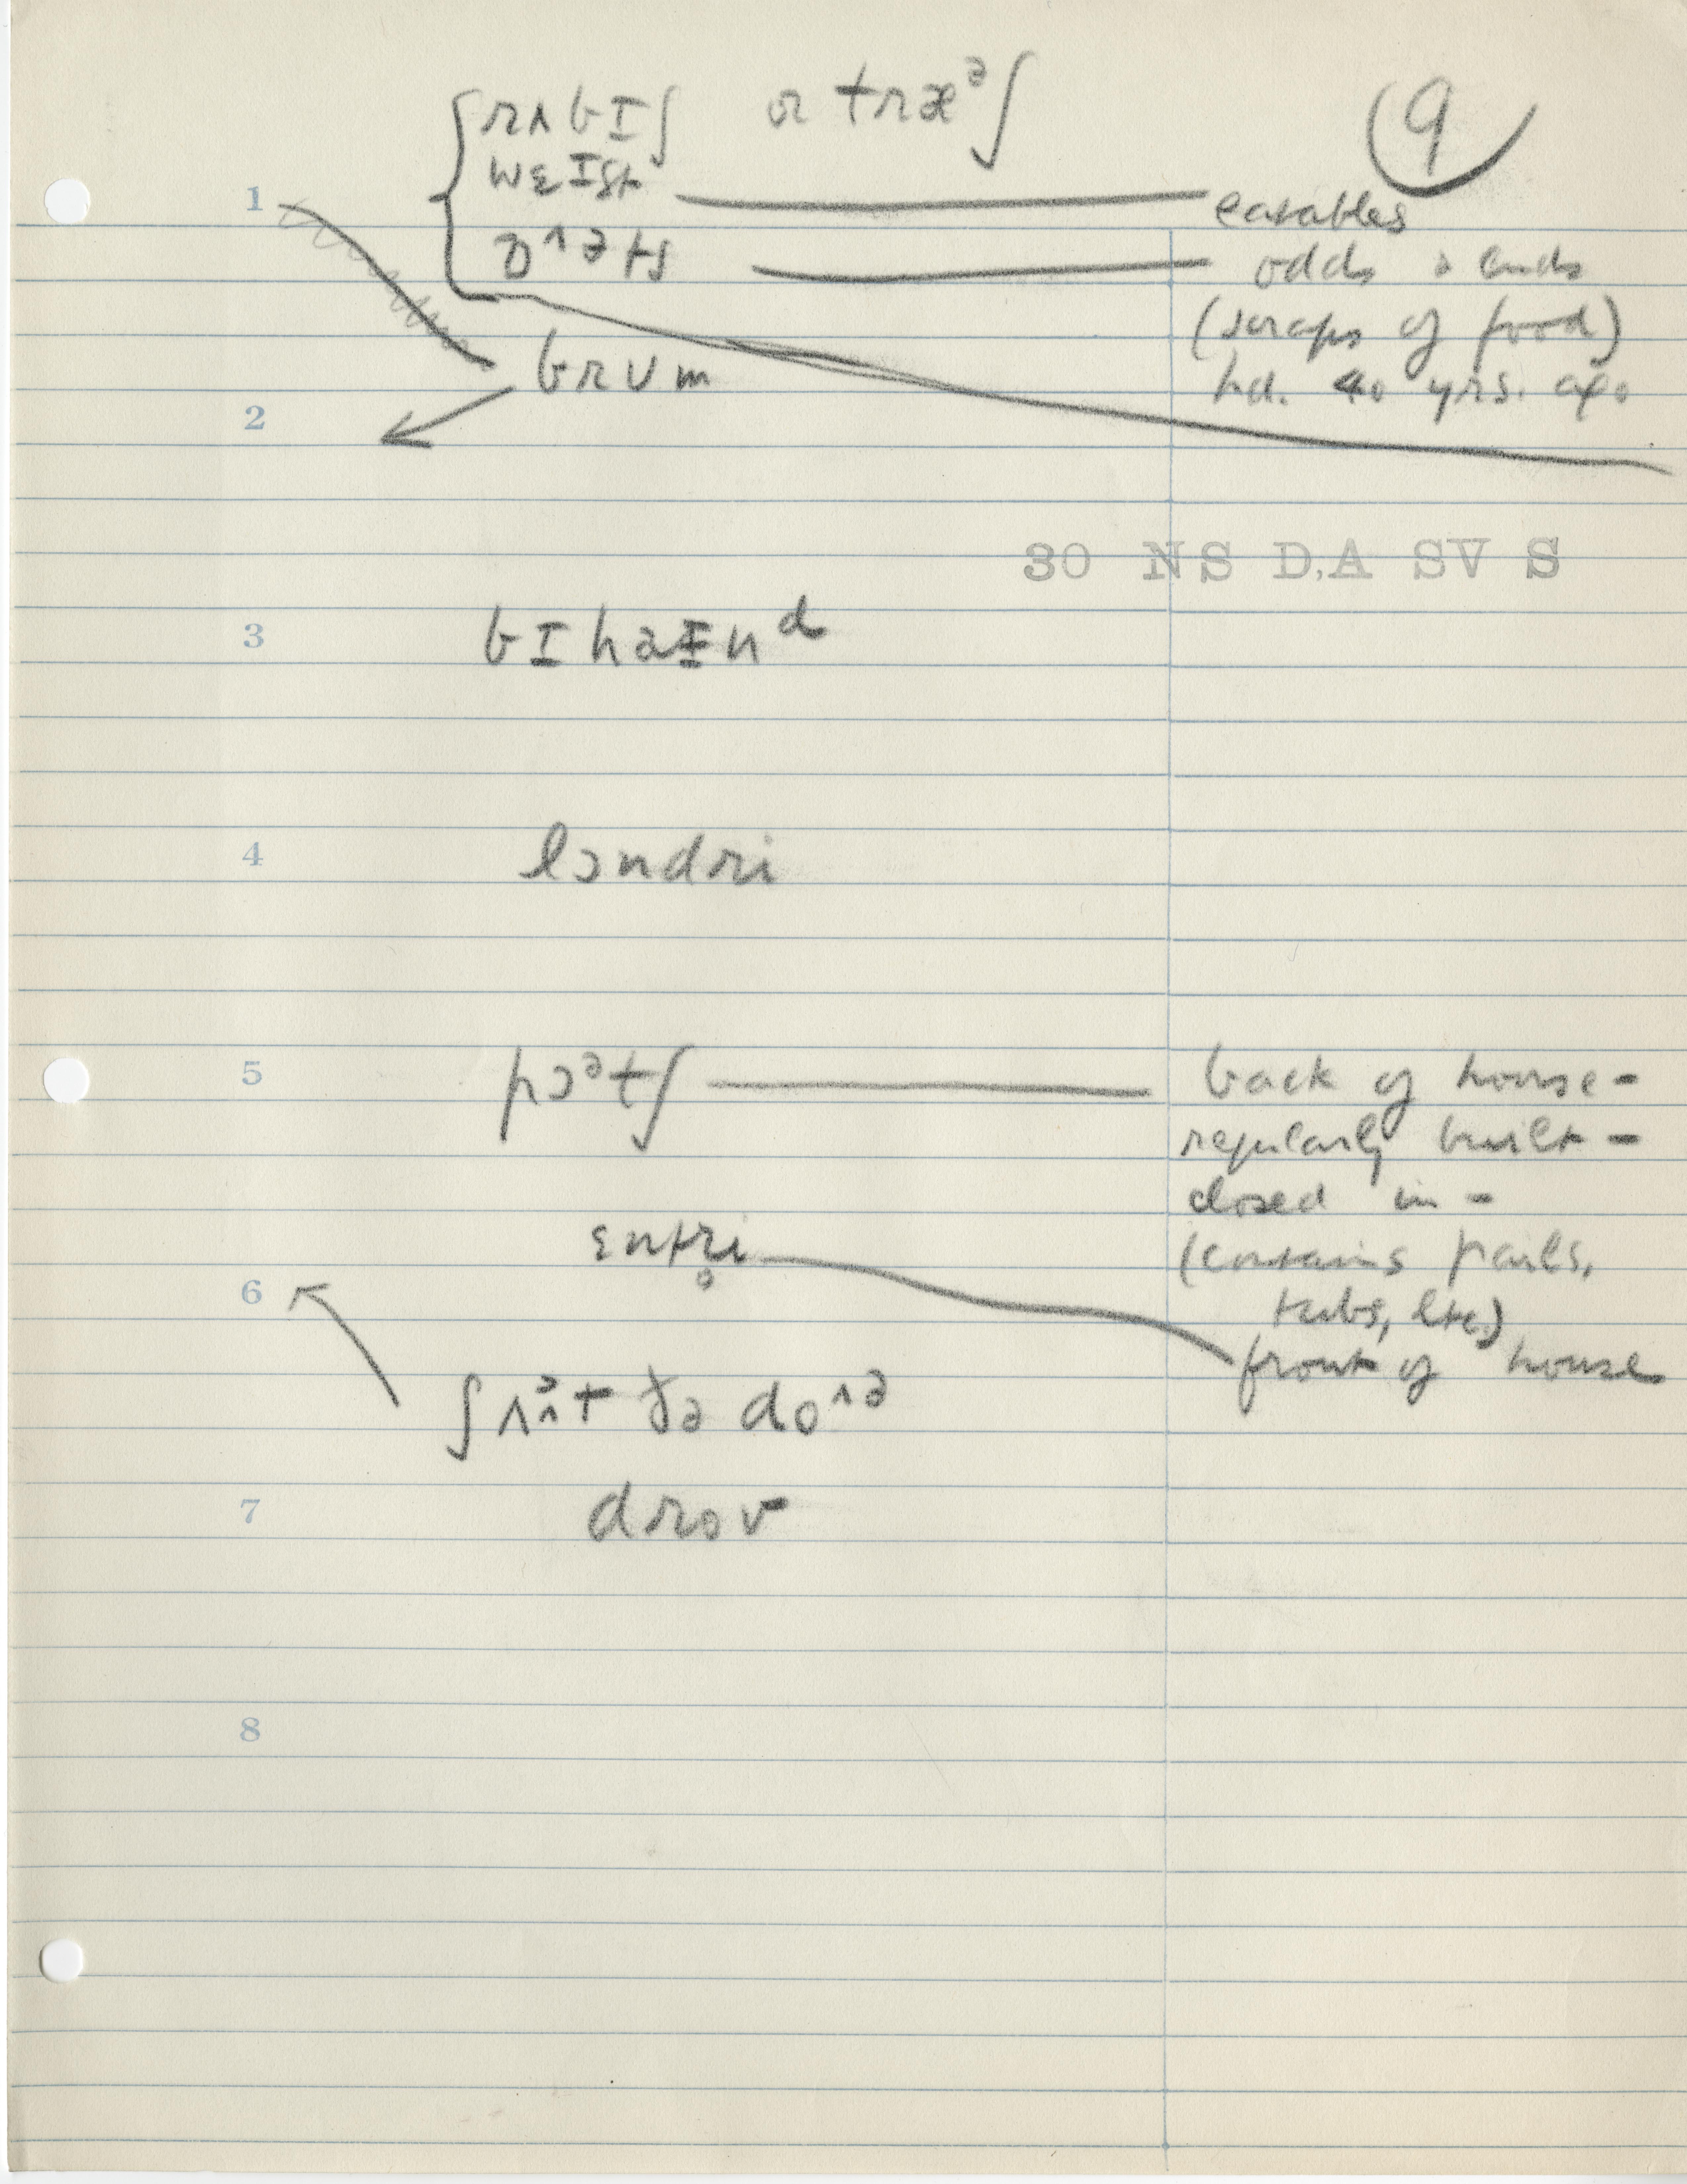 rʌbɪʃ or træᵊʃ
9
wɛɪst eatables
ɒ^ᵊts odds & ends
(scraps of food)
hd. 40 yrs. ago
1
brʊm
2
30 NS D,A SV S
3 bɪhaɪnᵈ
4 lɔndri
5 pɔᵊtʃ back of house -
regularly built -
closed in -
ɛntr̥i (contains pails,
6 tubs, etc.)
front of house
ʃʌt ðə do^ᵊ
7 drov
8